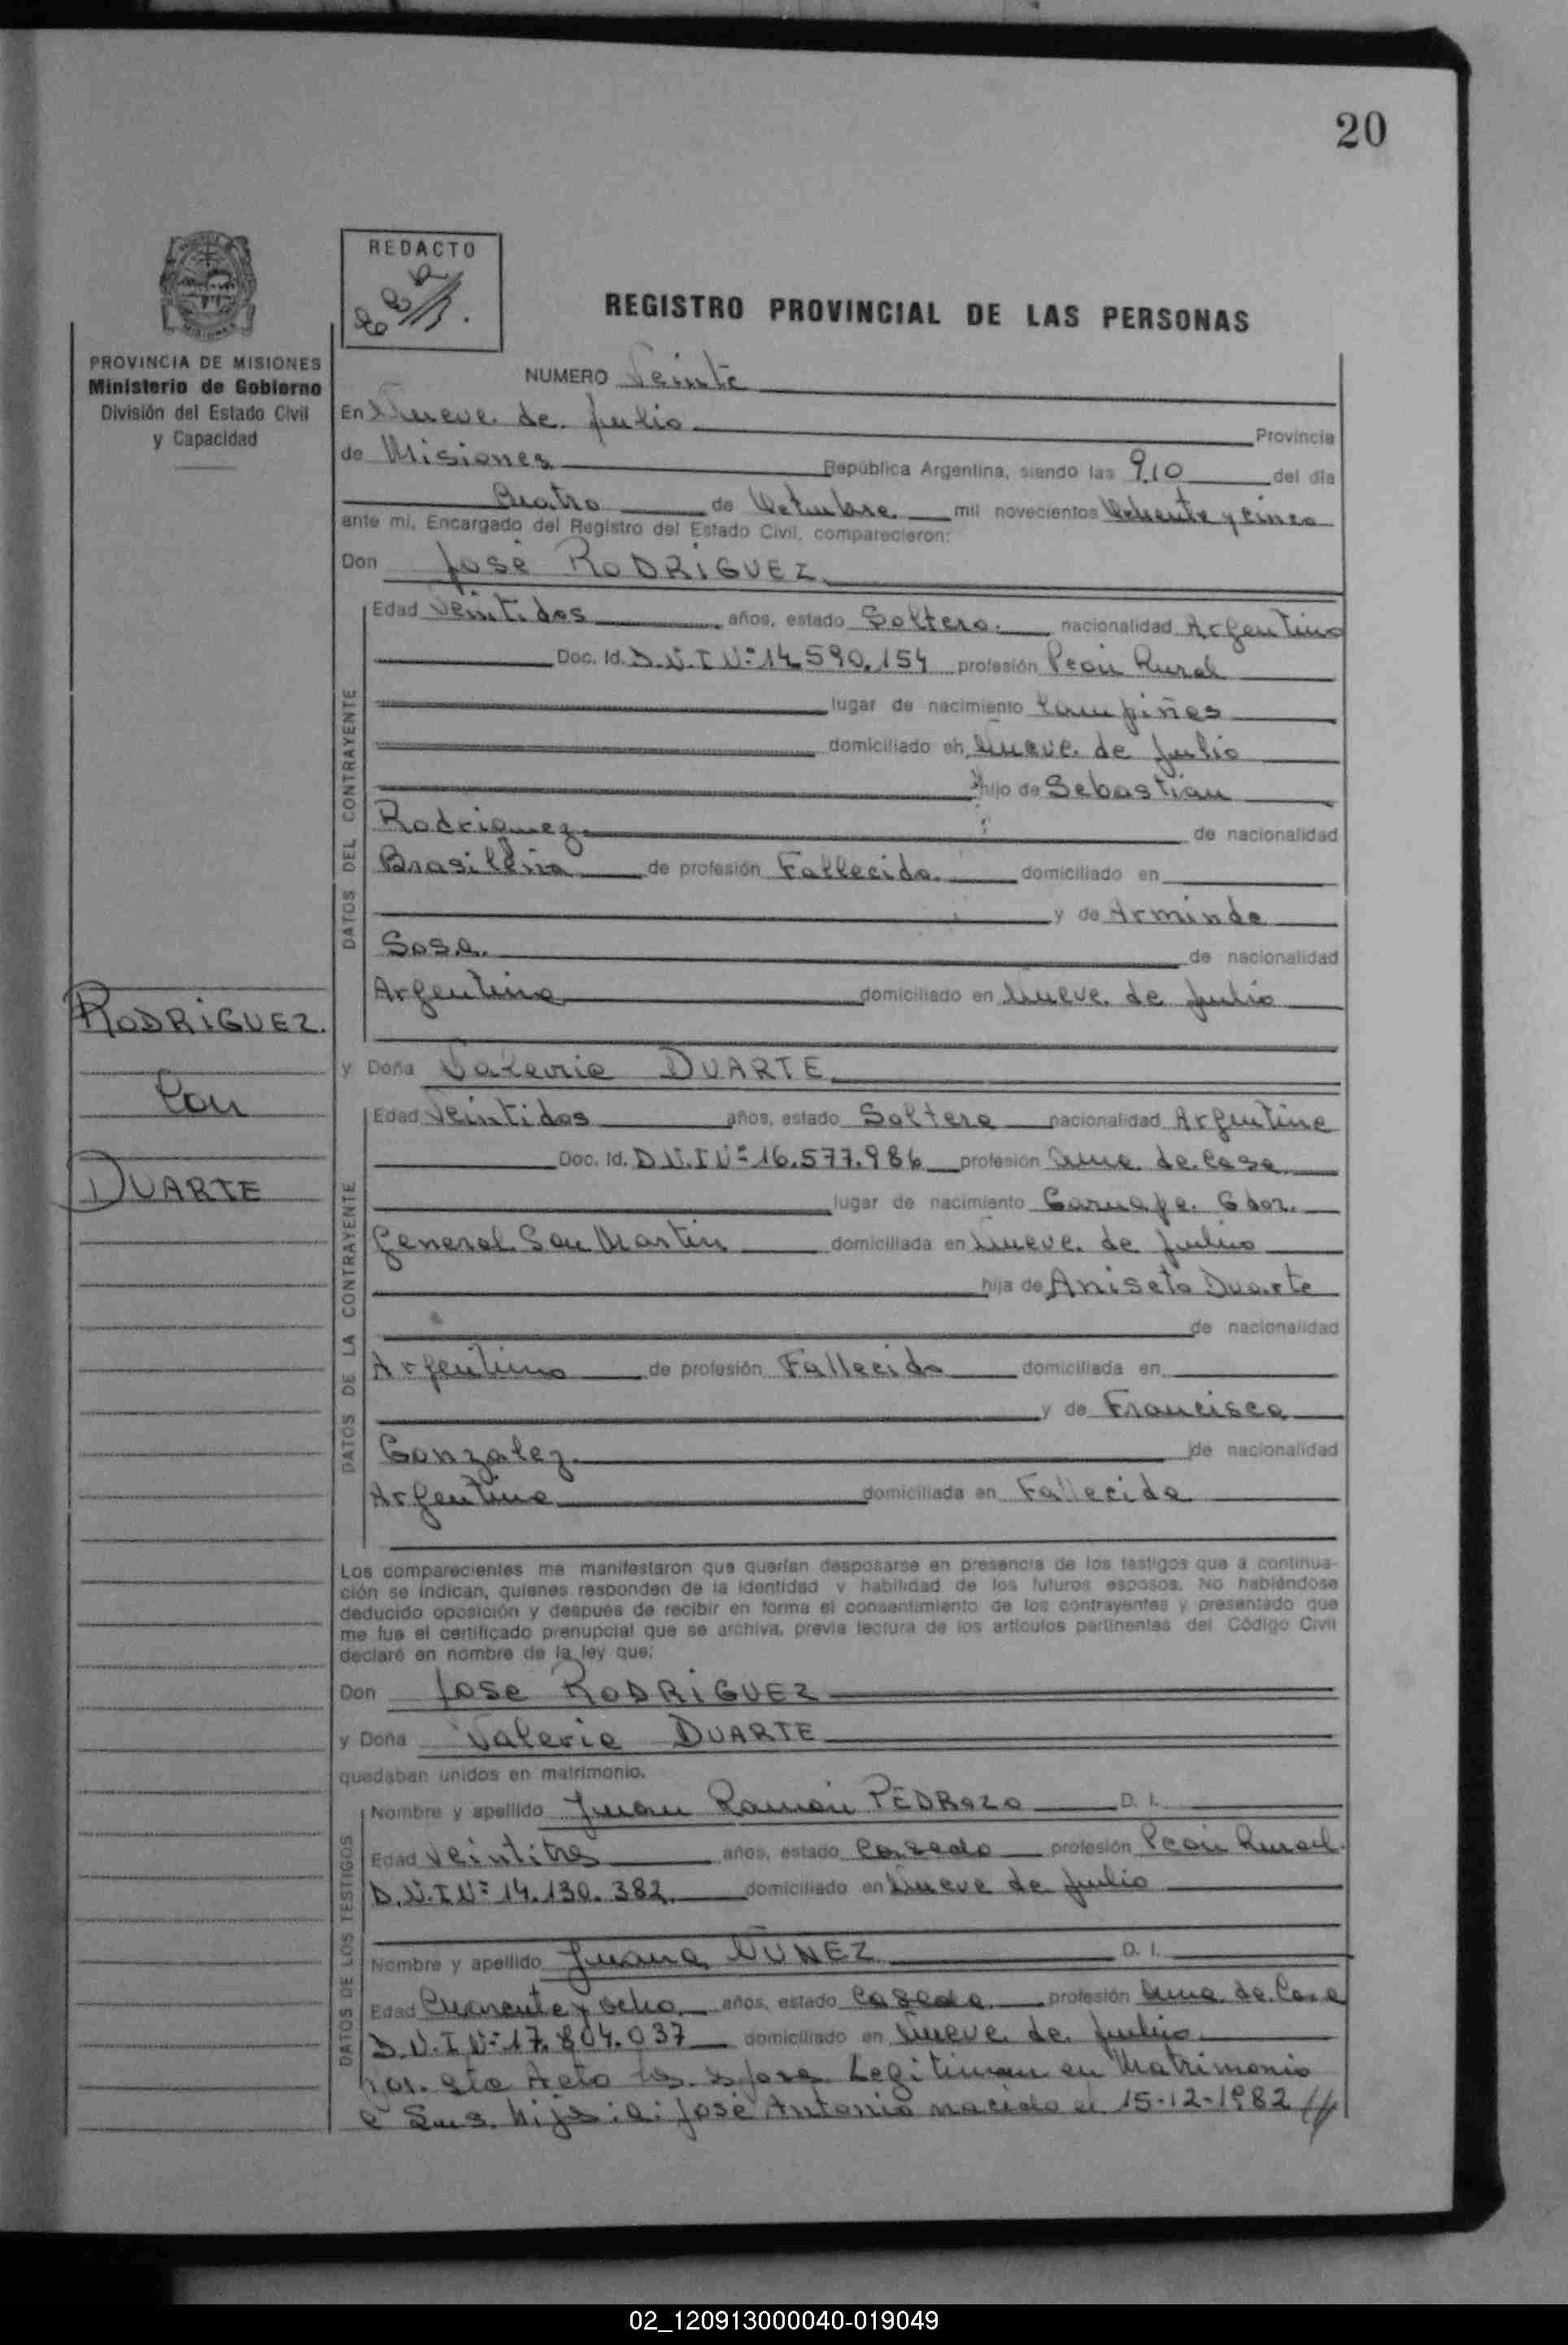 20
REDACTO
REGISTRO PROVINCIAL DE LAS PERSONAS
PROVINCIA DE MISIONES
Ministerio de Gobierno
División del Estado Civil
y Capacidad
NUMERO Veinte
En Nueve de Julio Provincia
de Misiones República Argentina, siendo las 9.10 del día
Cuatro de Octubre mil novecientos Ochenta y cinco
ante mi, Encargado del Registro del Estado Civil, comparecieron:
Don José RODRIGUEZ
DATOS DEL CONTRAYENTE
Edad Veintidos años, estado Soltero. nacionalidad Argentino
Doc. Id. D.N.I Nº 14.590.154 profesión Peón Rural
lugar de nacimiento Campiñes
domiciliado en Nueve de Julio
hijo de Sebastián
Rodriguez de nacionalidad
Brasilera de profesión Fallecido. domiciliado en
y de Arminda
Sosa. de nacionalidad
Argentina domiciliado en Nueve de Julio
RODRIGUEZ.
Con
DUARTE
y Doña Valeria DUARTE
DATOS DE LA CONTRAYENTE
Edad Veintidos años, estado Soltera nacionalidad Argentina
Doc. Id. D.N.I Nº 16.577.986 profesión ama de Casa
lugar de nacimiento Caruape. Gdor.
General San Martín domiciliada en Nueve de Julio
hija de Aniseto Duarte
de nacionalidad
Argentino de profesión Fallecido domiciliada en
y de Francisca
Gonzalez. de nacionalidad
Argentina domiciliada en Fallecida
Los comparecientes me manifestaron que querían desposarse en presencia de los testigos que a continua-
ción se indican, quienes responden de la identidad y habilidad de los futuros esposos. No habiéndose
deducido oposición y después de recibir en forma el consentimiento de los contrayentes y presentado que
me fue el certificado prenupcial que se archiva, previa lectura de los artículos pertinentes del Código Civil
declaré en nombre de la ley que:
Don José RODRIGUEZ
y Doña Valeria DUARTE
quedaban unidos en matrimonio.
DATOS DE LOS TESTIGOS
Nombre y apellido Juan Ramón PEDROZO D. I.
Edad Veintitres años, estado Casado profesión Peón Rural.
D.N.I Nº 14.130.382 domiciliado en Nueve de Julio
Nombre y apellido Juana NUÑEZ D. I.
Edad Cuarenta y ocho años, estado Casada profesión Ama de Casa
D.N.I Nº 17.804.037 domiciliado en Nueve de Julio
Por este Acto los Legitiman en Matrimonio
a Sus hijs: a: José Antonio nacido el 15-12-1982 //
02_120913000040-019049